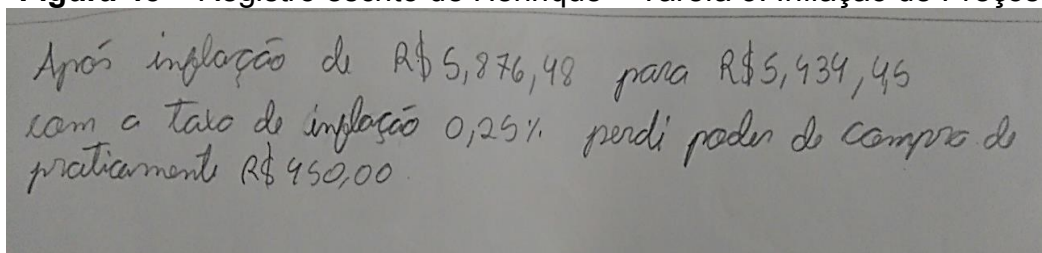 Após inflação de R$ 5,876,48 para R$5,434,45
com a taxa de inflação 0,25% perdi poder de compra de
praticamente R$ 450,00